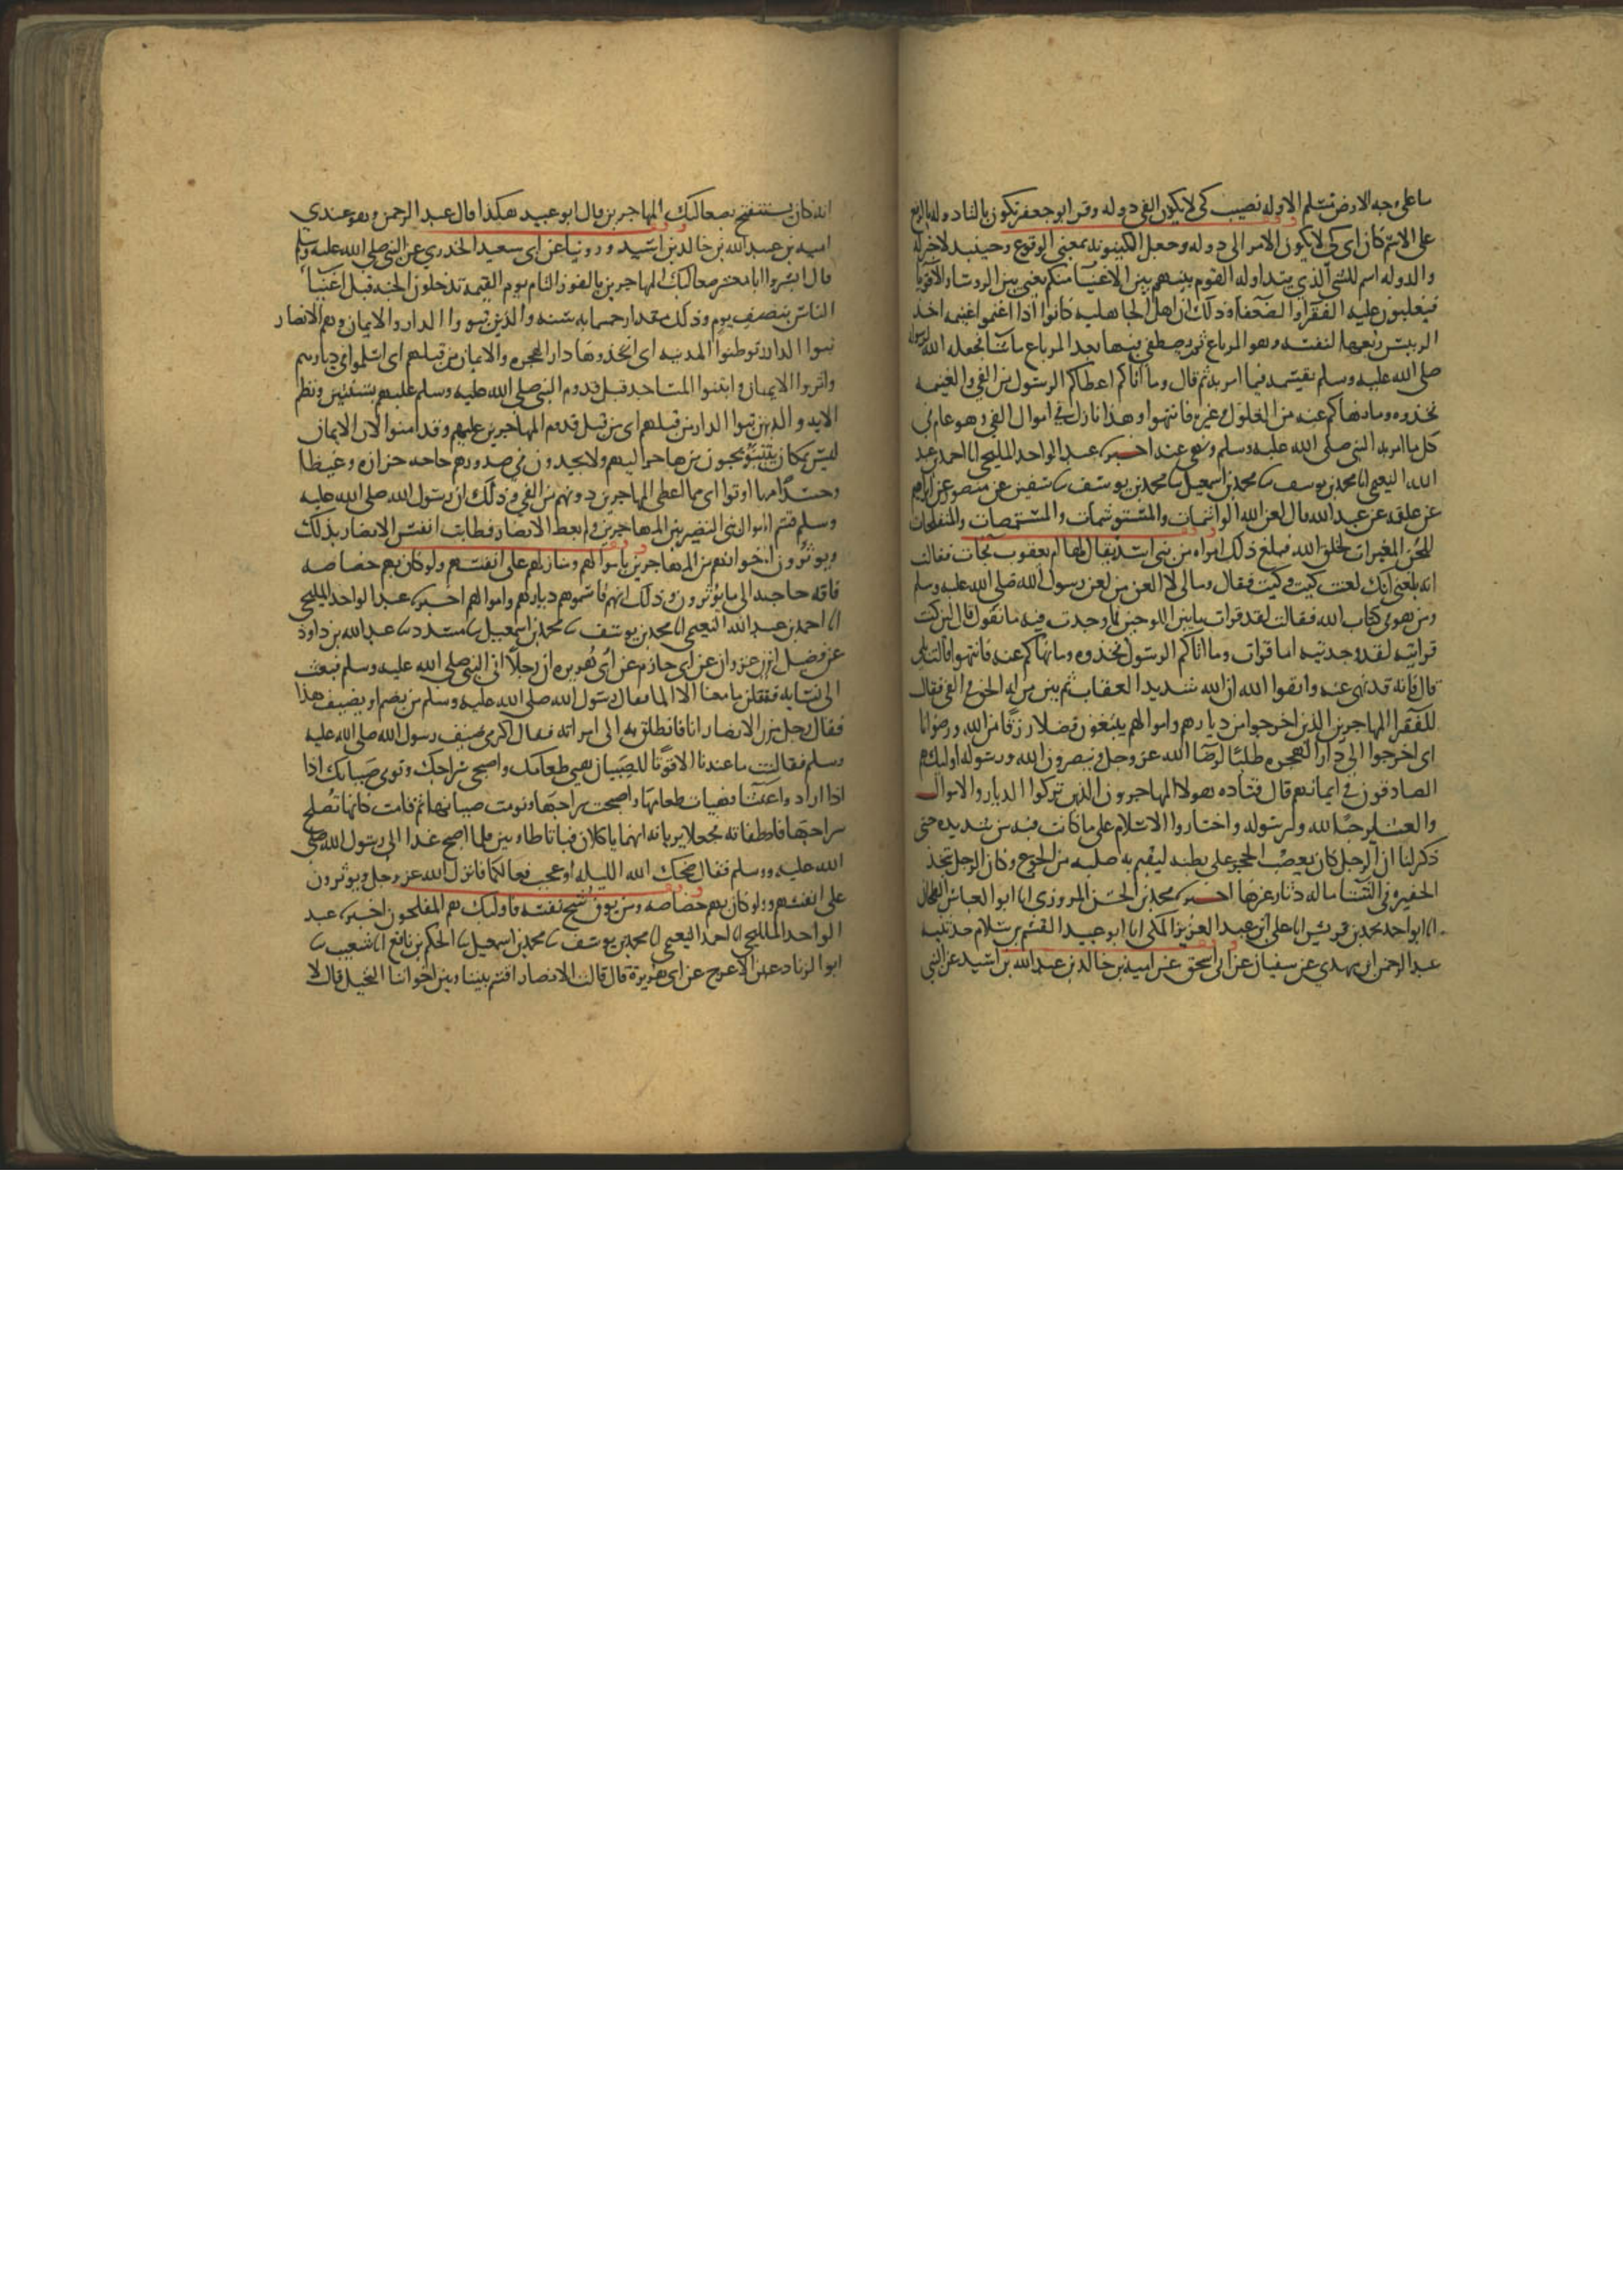 ما على وجه الارض مسلم الا وله نصيب كى لا يكون الفى دوله وقرا ابو جعفر تكون بالتا دوله بالرفع
على الاسم كان اى كى لا يكون الامر الى دوله وجعل الكينونه بمعنى الوقوع وحينيذ لا خبر له
والدوله اسم للشى الذي يتداوله القوم بينهم بين الاغنيا منكم يعنى بين الروسا والاقويا
فيغلبون عليه الفقرا والضعفا وذلك ان اهل الجاهليه كانوا اذا اغتنموا غنيمه اخذ
الرييس ربعها لنفسه وهو المرباع ثم يصطفى منها بعد المرباع ما شا فجعله الله لرسوله
صلى الله عليه وسلم يقسمه فيما امر به ثم قال وما اتاكم اعطاكم الرسول من الفي والغنيمه
فخذوه وما نهاكم عنه من الغلول وغيره فانتهوا وهذا نازل فى اموال الفي وهو عام فى
كل ما امر به النبى صلى الله عليه وسلم ونهى عنه اخبرنا عبد الواحد المليحى انا احمد بن عبد
الله النعيمى انا محمد بن يوسف نا محمد بن اسمعيل نا محمد بن يوسف نا سفين عن منصور عن ابراهيم
عن علقمه عن عبد الله قال لعن الله الواشمات والمستوشمات والمتنمصات والمتفلجات
للحسن المغيرات لخلق الله فبلغ ذلك امراه من بنى اسد يقال لها ام يعقوب فجات فقالت
انه بلغنى انك لعنت كيت وكيت فقال وما لى لا العن من لعن رسول الله صلى الله عليه وسلم
ومن هو فى كتاب الله فقالت لقد قرات ما بين اللوحين فما وجدت فيه ما تقول قال لين كنت
قراتيه لقد وجدتيه اما قرات وما اتاكم الرسول فخذوه وما نهاكم عنه فانتهوا قالت بلى
قال فانه قد نهى عنه واتقوا الله ان الله شديد العقاب ثم بين من له الحق فى الفى فقال
للفقرا المهاجرين الذين اخرجوا من ديارهم واموالهم يبتغون فضلا رزقا من الله ورضوانا
اى اخرجوا الى دار الهجره طلبا لرضا الله عز وجل وينصرون الله ورسوله اوليك هم
الصادقون فى ايمانهم قال قتاده هولا المهاجرون الذين تركوا الديار والاموال
والعشاير حبا لله ولرسوله واختاروا الاسلام على ما كانت فيه من شديده حتى
ذكر لنا ان الرجل كان يعصب الحجر على بطنه ليقيم به صلبه من الجوع وكان الرجل يتخذ
الحفيره فى الشتا ما له دثار غيرها اخبرنا محمد بن الحسن المروزى انا ابو العباس الطحان
انا ابو احمد محمد بن قريش انا على بن عبد العزيز المكى انا ابو عبيد القسم بن سلام حدثنيه
عبد الرحمن بن مهدي عن سفيان عن ابى اسحق عن اميه بن خالد بن عبد الله بن اسيد عن النبي
انه كان يستفتح بصعاليك المهاجرين قال ابو عبيد هكذا قال عبد الرحمن وهو عندي
اميه بن عبد الله بن خالد بن اسيد وروينا عن ابى سعيد الخدري عن النبى صلى الله عليه وسلم
قال ابشروا يا معشر صعاليك المهاجرين بالفوز التام يوم القيمه تدخلون الجنه قبل اغنيا
الناس بنصف يوم وذلك مقدار خمسمايه سنه والذين تبووا الدار والايمان وهم الانصار
تبووا الدار توطنوا المدينه اى اتخذوها دار الهجره والايمان من قبلهم اى اسلموا فى ديارهم
واثروا الايمان وابتنوا المساجد قبل قدوم النبى صلى الله عليه وسلم عليهم بسنتين ونظم
الايه والذين تبووا الدار من قبلهم اى من قبل قدوم المهاجرين عليهم وقد امنوا لان الايمان
ليس بمكان يتبوو يحبون من هاجر اليهم ولا يجدون فى صدورهم حاجه حزازه وغيظا
وحسدا مما اوتوا اى مما اعطى المهاجرين دونهم من الفى وذلك ان رسول الله صلى الله عليه
وسلم قسم اموال بنى النضير بين المهاجرين ولم يعط الانصار فطابت انفس الانصار بذلك
ويوثرون اخوانهم من المهاجرين باموالهم ومنازلهم على انفسهم ولو كان بهم خصاصه
فاقه حاجه الى ما يوثرون وذلك انهم قاسموهم ديارهم واموالهم اخبرنا عبد الواحد المليحى
انا احمد بن عبد الله النعيمى انا محمد بن يوسف نا محمد بن اسمعيل نا مسدد نا عبد الله بن داود
عن فضيل بن غزوان عن ابى حازم عن ابى هريره ان رجلا اتى النبى صلى الله عليه وسلم فبعث
الى نسايه فقلن ما معنا الا الما فقال رسول الله صلى الله عليه وسلم من يضم او يضيف هذا
فقال رجل من الانصار انا فانطلق به الى امراته فقال اكرمى ضيف رسول الله صلى الله عليه
وسلم فقالت ما عندنا الا قوتا للصبيان هيى طعامك واصبحى سراجك ونومى صبيانك اذا
اذا ارادوا عشا فهيات طعامها واصبحت سراجها ونومت صبيانها ثم قامت كانها تصلح
سراجها فاطفاته فجعلا يريانه انهما ياكلان فباتا طاويين فلما اصبح غدا الى رسول الله صلى
الله عليه ووسلم فقال ضحك الله الليله او عجب فعالكما فانزل الله عز وجل ويوثرون
على انفسهم ولو كان بهم خصاصه ومن يوق شح نفسه فاوليك هم المفلحون اخبرنا عبد
الواحد المليحى انا احمد النعيمى انا محمد بن يوسف نا محمد بن اسمعيل نا الحكم بن نافع انا شعيب نا
ابو الزناد عن الاعرج عن ابى هريرة قال قالت الانصار اقسم بيننا وبين اخواننا النخيل قال لا